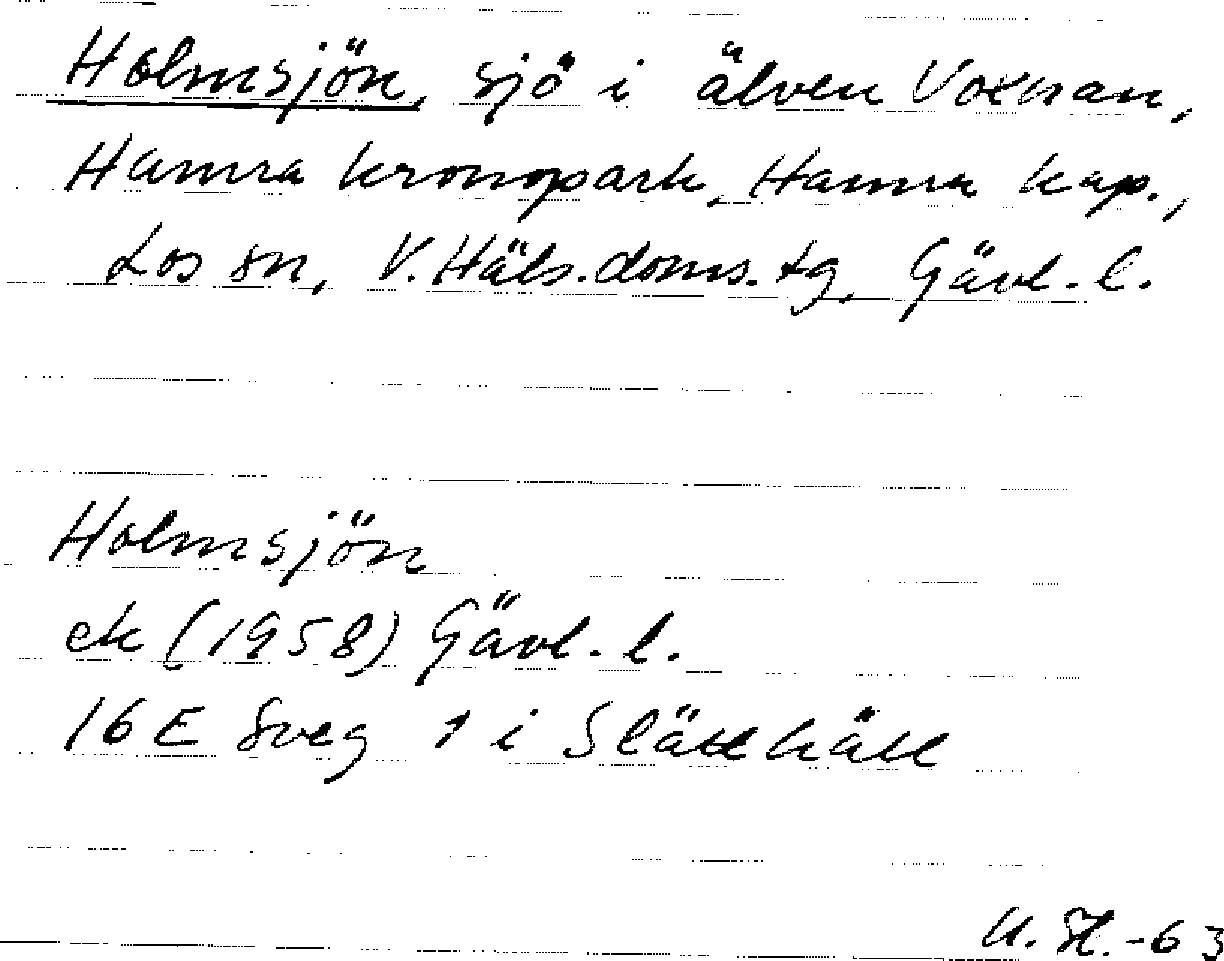 Holmsjön, sjö i älven Voxnan,
Hamra kronopark, Hamra kap.,
Los sn, V. Häls. doms. tg, Gävl. l.
Holmsjön
ek (1958) Gävl. l.
16 E Sveg 1 i Slättkätt
-63